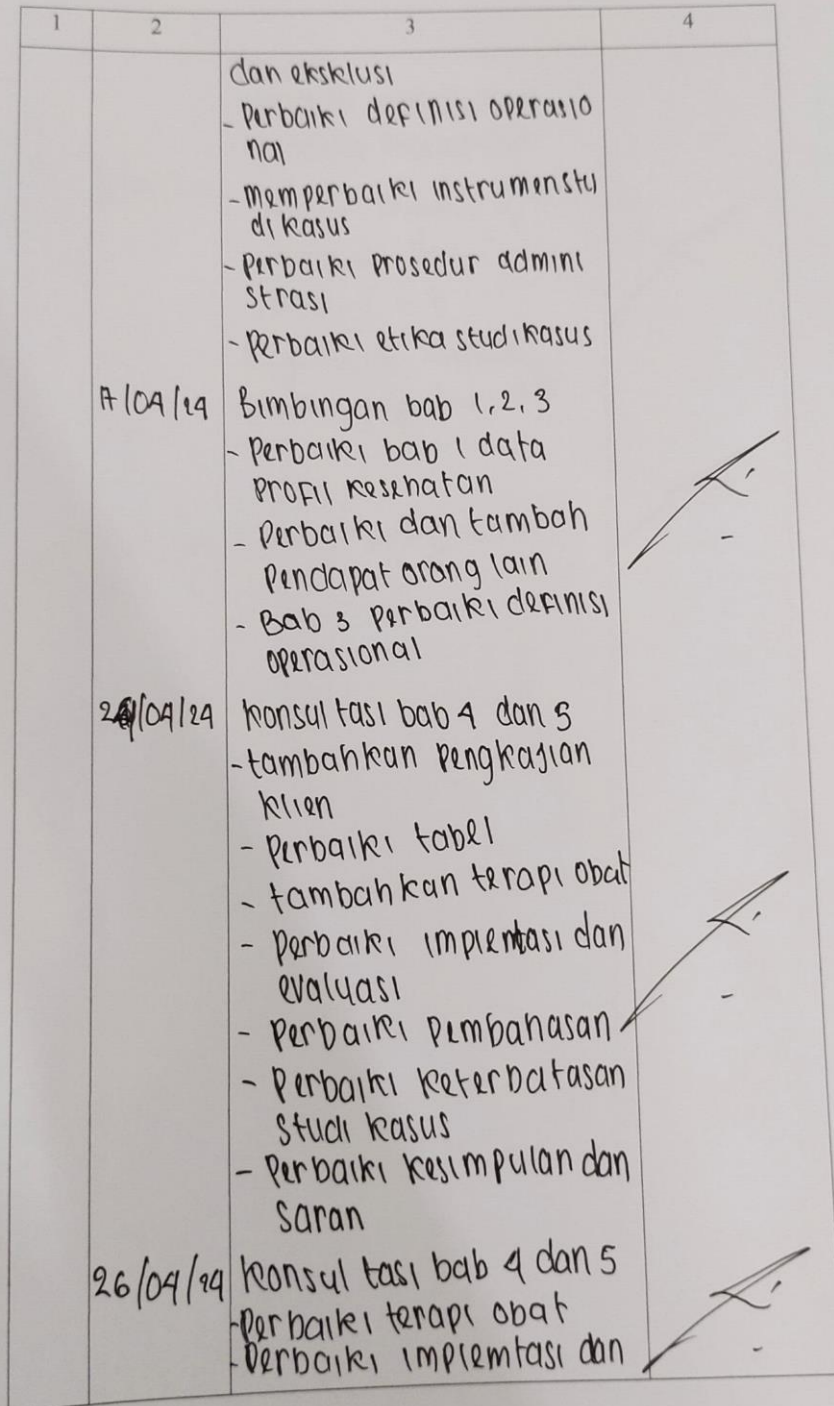 1 2 3 4
dan eksklusi
- Perbaiki definisi operasio
nal
- memperbaiki instrumen stu
di kasus
- Perbaiki prosedur admini
strasi
- Perbaiki etika studi kasus
17/04/24 Bimbingan bab 1, 2, 3
- Perbaiki bab 1 data
Profil kesehatan
- Perbaiki dan tambah
Pendapat orang lain
- Bab 3 perbaiki definisi
operasional
/04/24 Konsultasi bab 4 dan 5
- tambahkan Pengkajian
klien
- Perbaiki tabel
- tambahkan terapi obat
- Perbaiki implentasi dan
evaluasi
- Perbaiki Pembahasan
- Perbaiki keterbatasan
Studi kasus
- Perbaiki kesimpulan dan
Saran
26/04/24 Konsultasi bab 4 dan 5
- Perbaiki terapi obat
- Perbaiki implemtasi dan